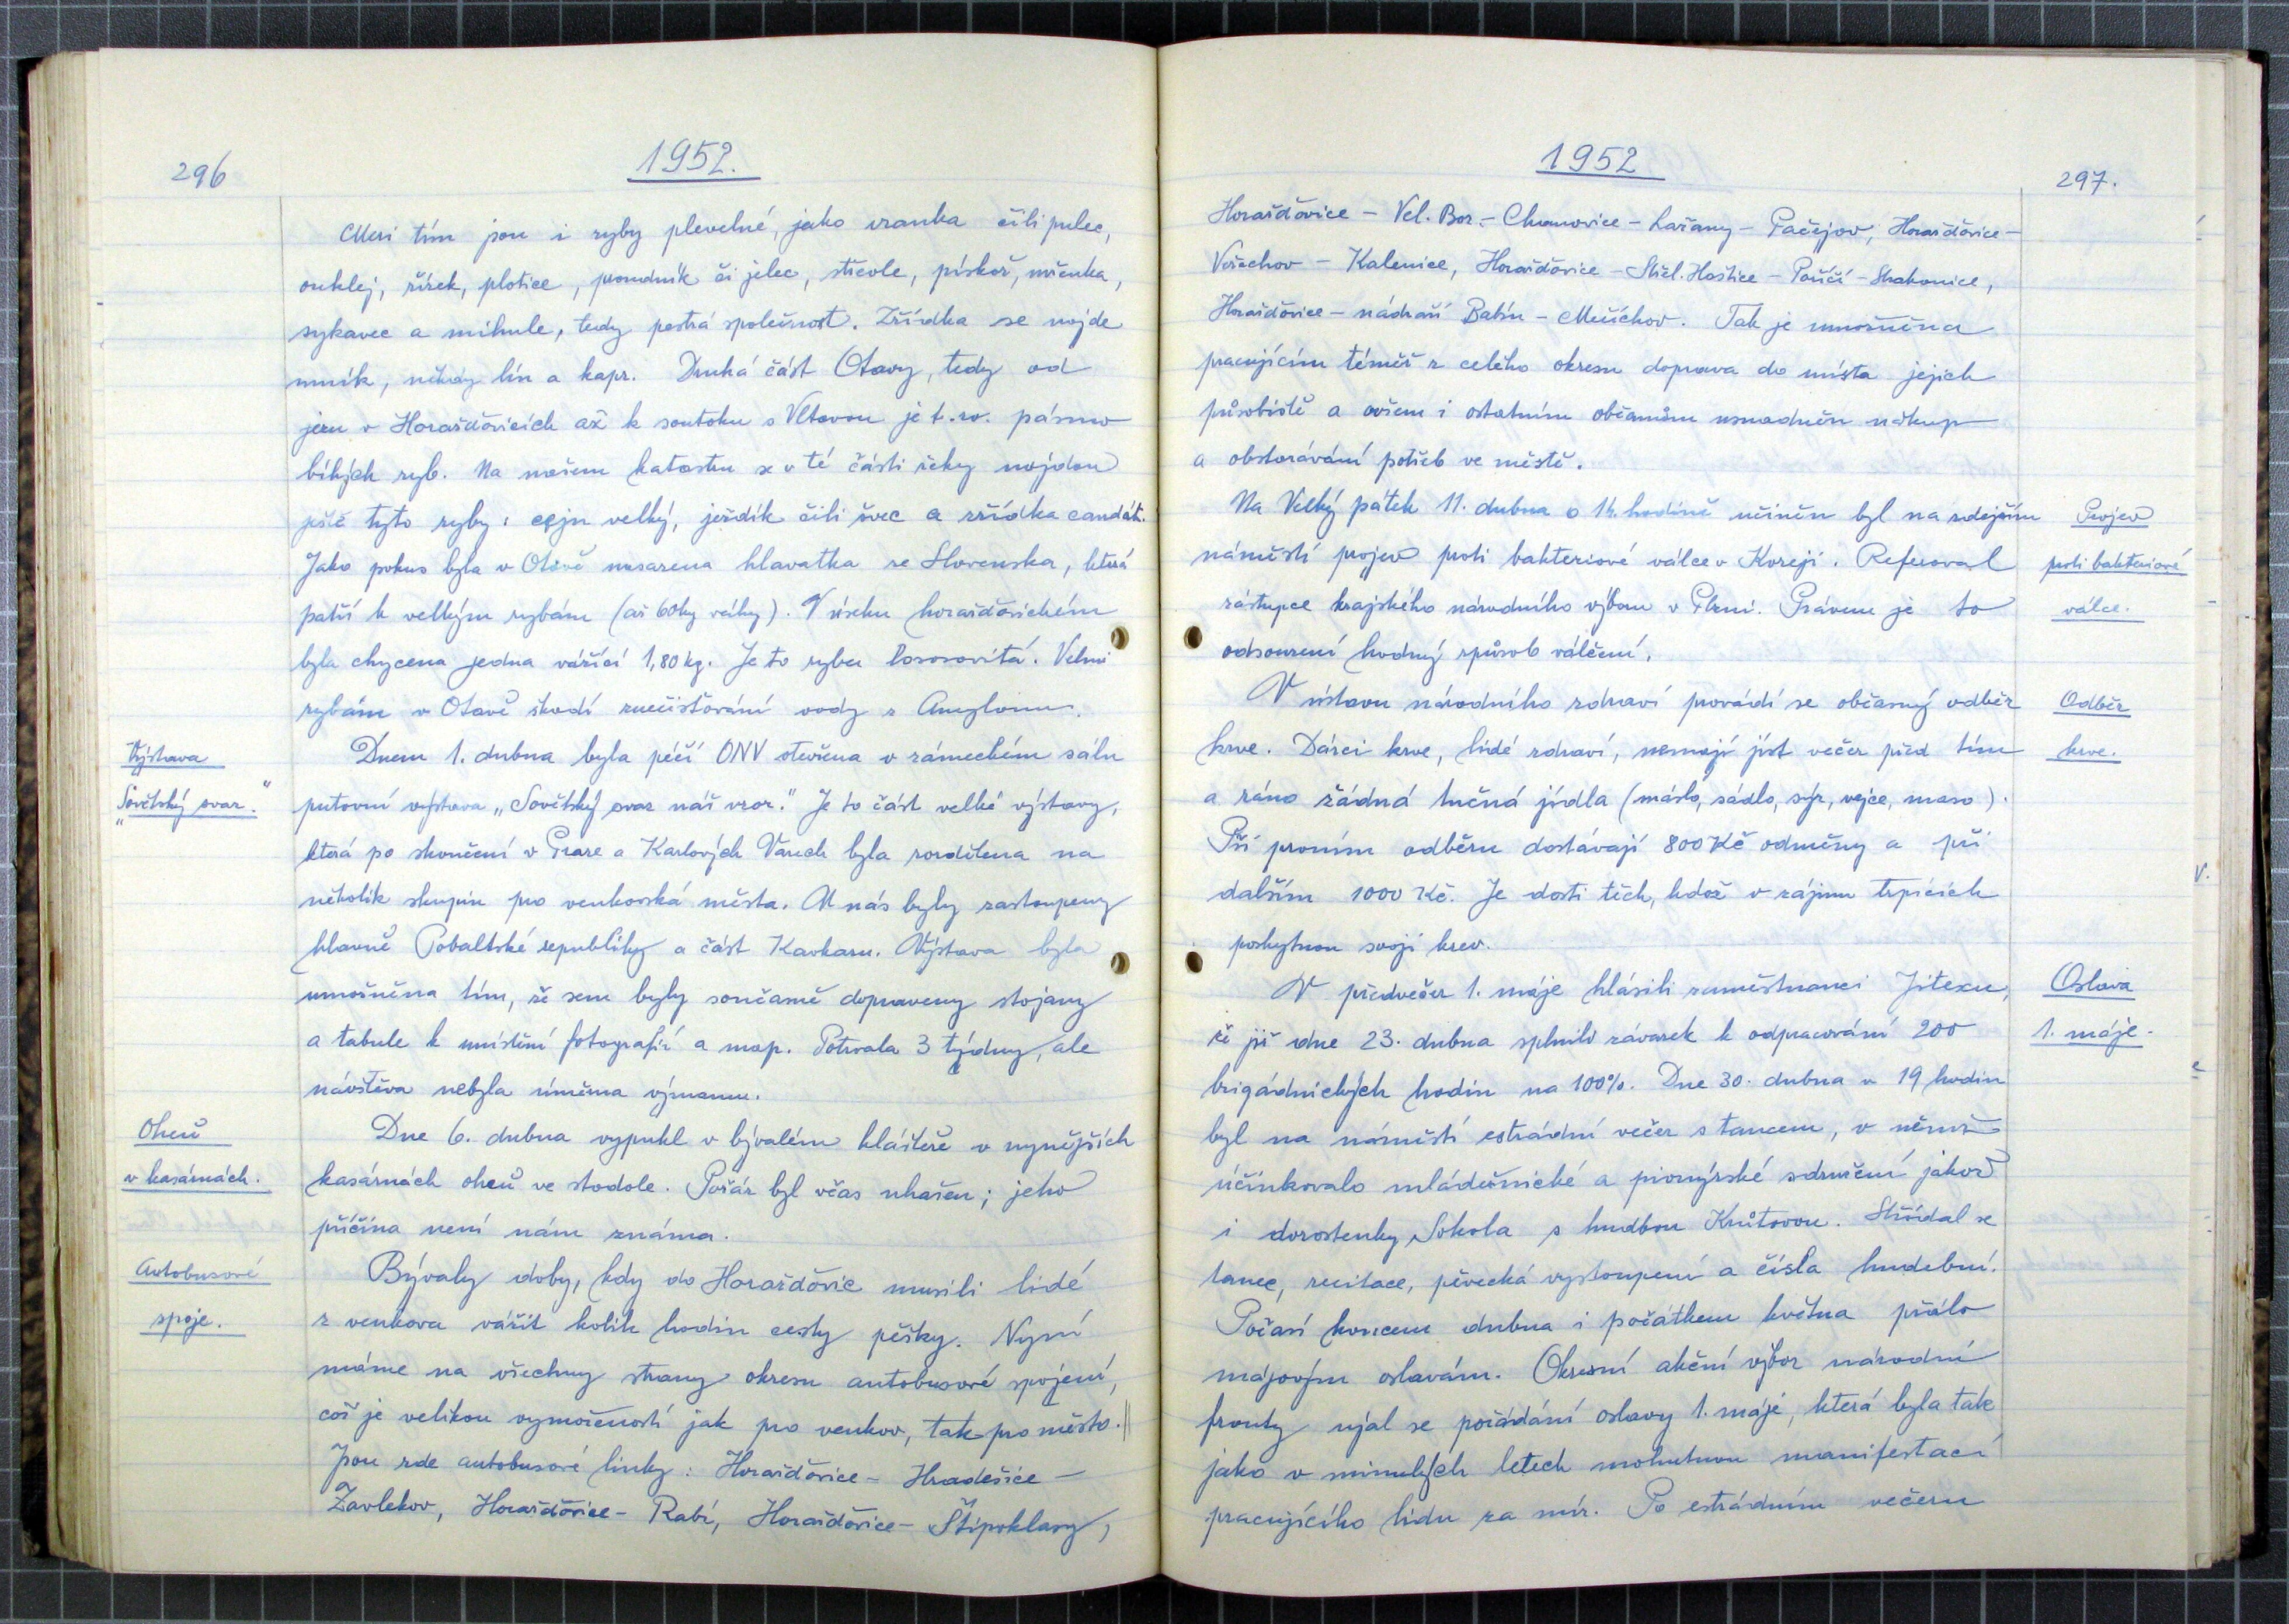 296
1952.
Mezi tím jsou i ryby plevelné, jako vranka čili pulec,
ouklej, řízek, plotice, proudník či jelec, střevle, piskoř, mřenka,
sykavec a mihule, tedy pestrá společnost. Zřídka se najde
mník, někdy lín a kapr. Druhá část Otavy, tedy od
jezu v Horažďovicích až k soutoku s Vltavou je t. zv. pásmo
bílých ryb. Na našem katastru se v té části řeky najdou
ještě tyto ryby: cejn velký, ježdík čili švec a zřídka candát.
Jako pokus byla v Otavě nasazena hlavatka ze Slovenska, která
patří k velkým rybám (až 60kg váhy). V úseku horažďovickém
byla chycena jedna vážící 1,80 kg. Je to ryba lososovitá. Velmi
rybám v Otavě škodí znečisťování vody z Amylonu.
Výstava
„Sovětský svaz."
Dnem 1. dubna byla péčí ONV otevřena v zámeckém sálu
putovní výstava „Sovětský svaz náš vzor." Je to část velké výstavy,
která po skončení v Praze a Karlových Varech byla rozdělena na
několik skupin pro venkovská města. U nás byly zastoupeny
hlavně Pobaltské republiky a část Kavkazu. Výstava byla
umožněna tím, že sem byly současně dopraveny stojany
a tabule k umístění fotografií a map. Potrvala 3 týdny, ale
návštěva nebyla úměrna významu.
Oheň
v kasárnách.
Dne 6. dubna vypukl v bývalém klášteře v nynějších
kasárnách oheň ve stodole. Požár byl včas uhašen; jeho
příčina není nám známa.
Autobusové
spoje.
Bývaly doby, kdy do Horažďovic musili lidé
z venkova vážit kolik hodin cesty pěšky. Nyní
máme na všechny strany okresu autobusové spojení,
což je velikou vymožeností jak pro venkov, tak pro město.
Jsou zde autobusové linky: Horažďovice - Hradešice -
Žavlekov, Horažďovice - Rabí, Horažďovice - Štipoklasy,
1952
297.
Horažďovice - Vel. Bor. - Chanovice - Lažany - Pačejov, Horažďovice -
Veřechov - Kalenice, Horažďovice - Střel. Hoštice - Poříčí - Strakonice,
Horažďovice - nádraží Babín - Mečíchov. Tak je umožněna
pracujícím téměř z celého okresu doprava do místa jejich
působiště a ovšem i ostatním občanům usnadněn nákup
a obstarávání potřeb ve městě.
Na Velký pátek 11. dubna o 14. hodině učiněn byl na zdejším
náměstí projev proti bakteriové válce v Koreji. Referoval
zástupce krajského národního výboru v Plzni. Právem je to
odsouzení hodný způsob válčení.
Projev
proti bakteriové
válce.
V ústavu národního zdraví provádí se občasný odběr
krve. Dárci krve, lidé zdraví, nemají jíst večer před tím
a ráno žádná tučná jídla (máslo, sádlo, sýr, vejce, maso).
Při prvním odběru dostávají 800 Kč odměny a při
dalším 1000 Kč. Je dosti těch, kdož v zájmu trpících
poskytnou svoji krev.
Odběr
krve.
V předvečer 1. máje hlásili zaměstnanci Jitexu,
že již dne 23. dubna splnili závazek k odpracování 200
brigádnických hodin na 100%. Dne 30. dubna v 19 hodin
byl na náměstí estrádní večer s tancem, v němž
účinkovalo mládežnické a pionýrské sdružení jakož
i dorostenky Sokola s hudbou Knítovou. Střídal se
tanec, recitace, pěvecká vystoupení a čísla hudební.
Počasí koncem dubna i počátkem května přálo
májovým oslavám. Okresní akční výbor národní
fronty ujal se pořádání oslavy 1. máje, která byla tak
jako v minulých letech mohutnou manifestací
pracujícího lidu za mír. Po estrádním večeru
Oslava
1. máje.